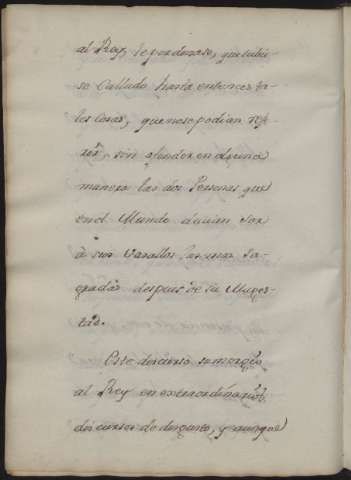 al Rey, le perdonase, que hubie-
se Callado hasta entonces ta-
les cosas, que no se podian refe-
rir, sin ofender en alguna
manera las dos Personas que
en el Mundo deuian ser
à sus Vasallos las mas Sa-
gradas despues de su Mages-
tad.
Este discurso
al Rey en extraordinarios
discursos de disgusto, y aunque